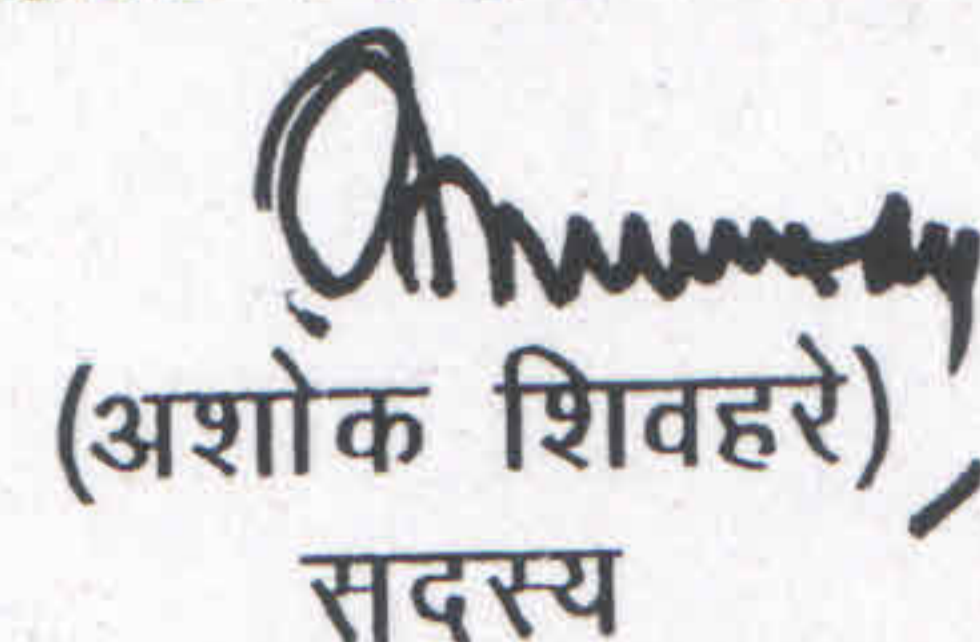 (अशोक शिवहरे)
सदस्य